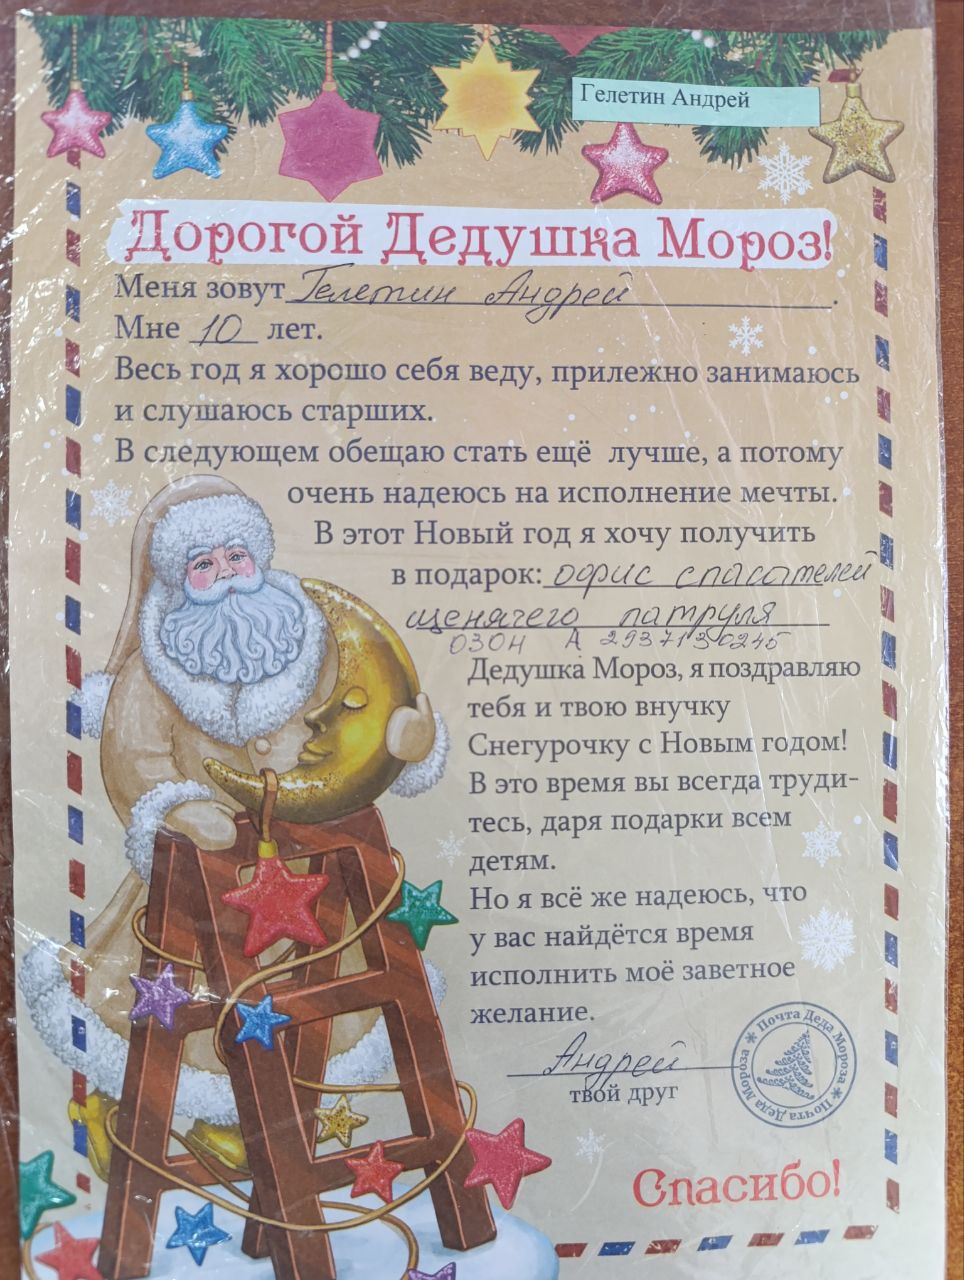 Гелетин Андрей
Дорогой Дедушка Мороз!
Меня зовут Гелетин Андрей.
Мне 10 лет.
Весь год я хорошо себя веду, прилежно занимаюсь
и слушаюсь старших.
В следующем обещаю стать ещё лучше, а потому
очень надеюсь на исполнение мечты.
В этот Новый год я хочу получить
в подарок: офис спасателей
щенячего патруля
ОЗОН А 2937130245
Дедушка Мороз, я поздравляю
тебя и твою внучку
Снегурочку с Новым годом!
В это время вы всегда труди-
тесь, даря подарки всем
детям.
Но я всё же надеюсь, что
у вас найдётся время
исполнить моё заветное
желание.
Андрей
твой друг
Почта Деда Мороза * Почта Деда Мороза *
Спасибо!